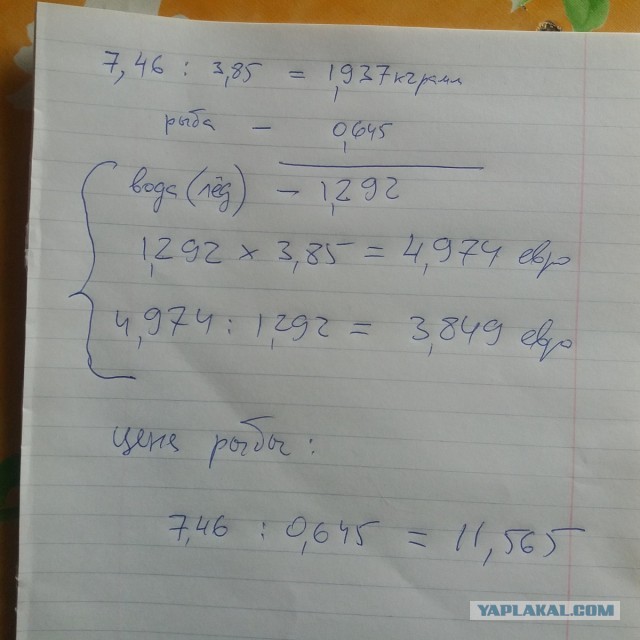 7,46 : 3,85 = 1,937 кграмм
рыба - 0,645
вода (лёд) - 1,292
1,292 x 3,85 = 4,974 евро
4,974 : 1,292 = 3,849 евро
цена рыбы:
7,46 : 0,645 = 11,565
YAPLAKAL.COM